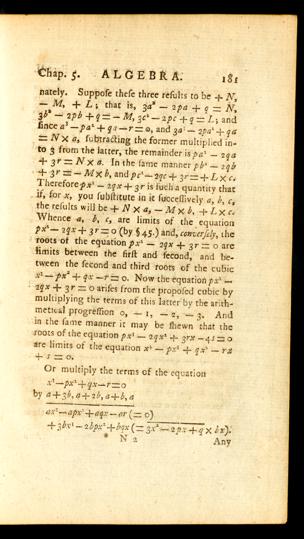 Chap. 5. ALGEBRA. 181
nately. Suppose these three results to be + N,
— M, + L; that is, 3a² — 2pa + q = N,
3b² — 2pb + q = — M, 3c² — 2pc + q = L; and
since a³ — pa² + qa — r = 0, and 3a³ — 2pa² + qa
= N × a, subtracting the former multiplied in-
to 3 from the latter, the remainder is pa² — 2qa
+ 3r = N × a. In the same manner pb² — 2qb
+ 3r = — M × b, and pc² — 2qc + 3r = + L × c.
Therefore px² — 2qx + 3r is such a quantity that
if, for x, you substitute in it successively a, b, c,
the results will be + N × a, — M × b, + L × c.
Whence a, b, c, are limits of the equation
px² — 2qx + 3r = 0 (by § 45.) and, conversely, the
roots of the equation px² — 2qx + 3r = 0 are
limits between the first and second, and be-
tween the second and third roots of the cubic
x³ — px² + qx — r = 0. Now the equation px² —
2qx + 3r = 0 arises from the proposed cubic by
multiplying the terms of this latter by the arith-
metical progression 0, — 1, — 2, — 3. And
in the same manner it may be shewn that the
roots of the equation px³ — 2qx² + 3rx — 4s = 0
are limits of the equation x⁴ — px³ + qx² — rx
+ s = 0.
Or multiply the terms of the equation
x³ — px² + qx — r = 0
by a + 3b, a + 2b, a + b, a
ax³ — apx² + aqx — ar (= 0)
+ 3bx³ — 2bpx² + bqx (= 3x² — 2px + q × bx).
* N 2 Any